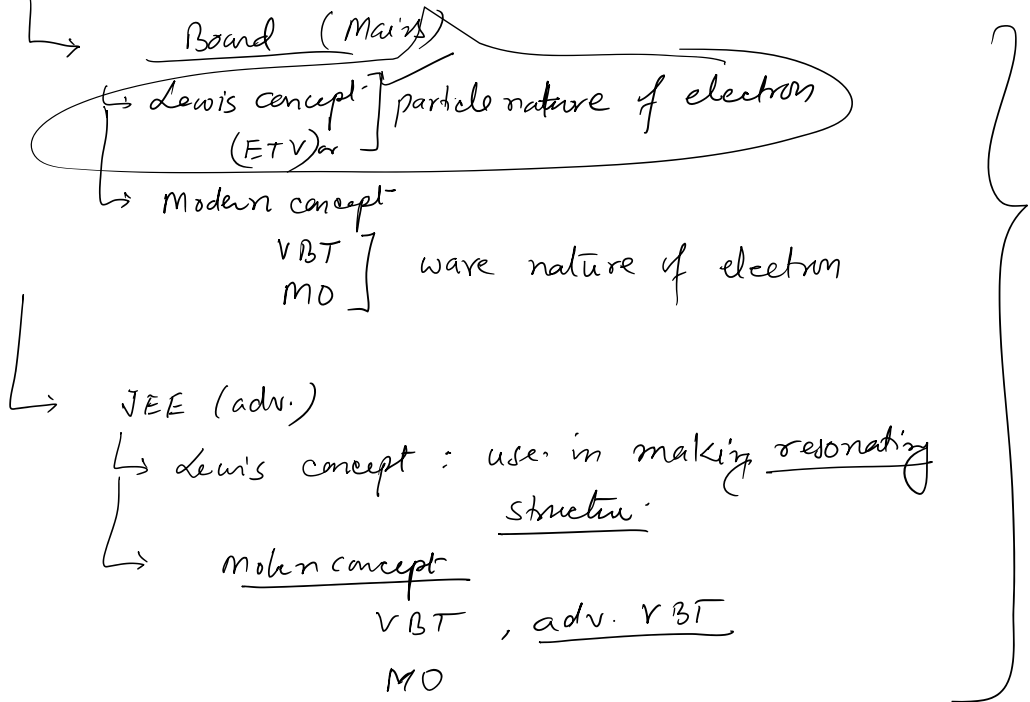 Board (Mains)
Lewis concept ] particle nature of electron
(ETV) or
Modern concept
VBT
MO ] wave nature of electron
JEE (adv.)
Lewis concept : use in making resonating
structure.
Modern concept
VBT , adv. VBT
MO